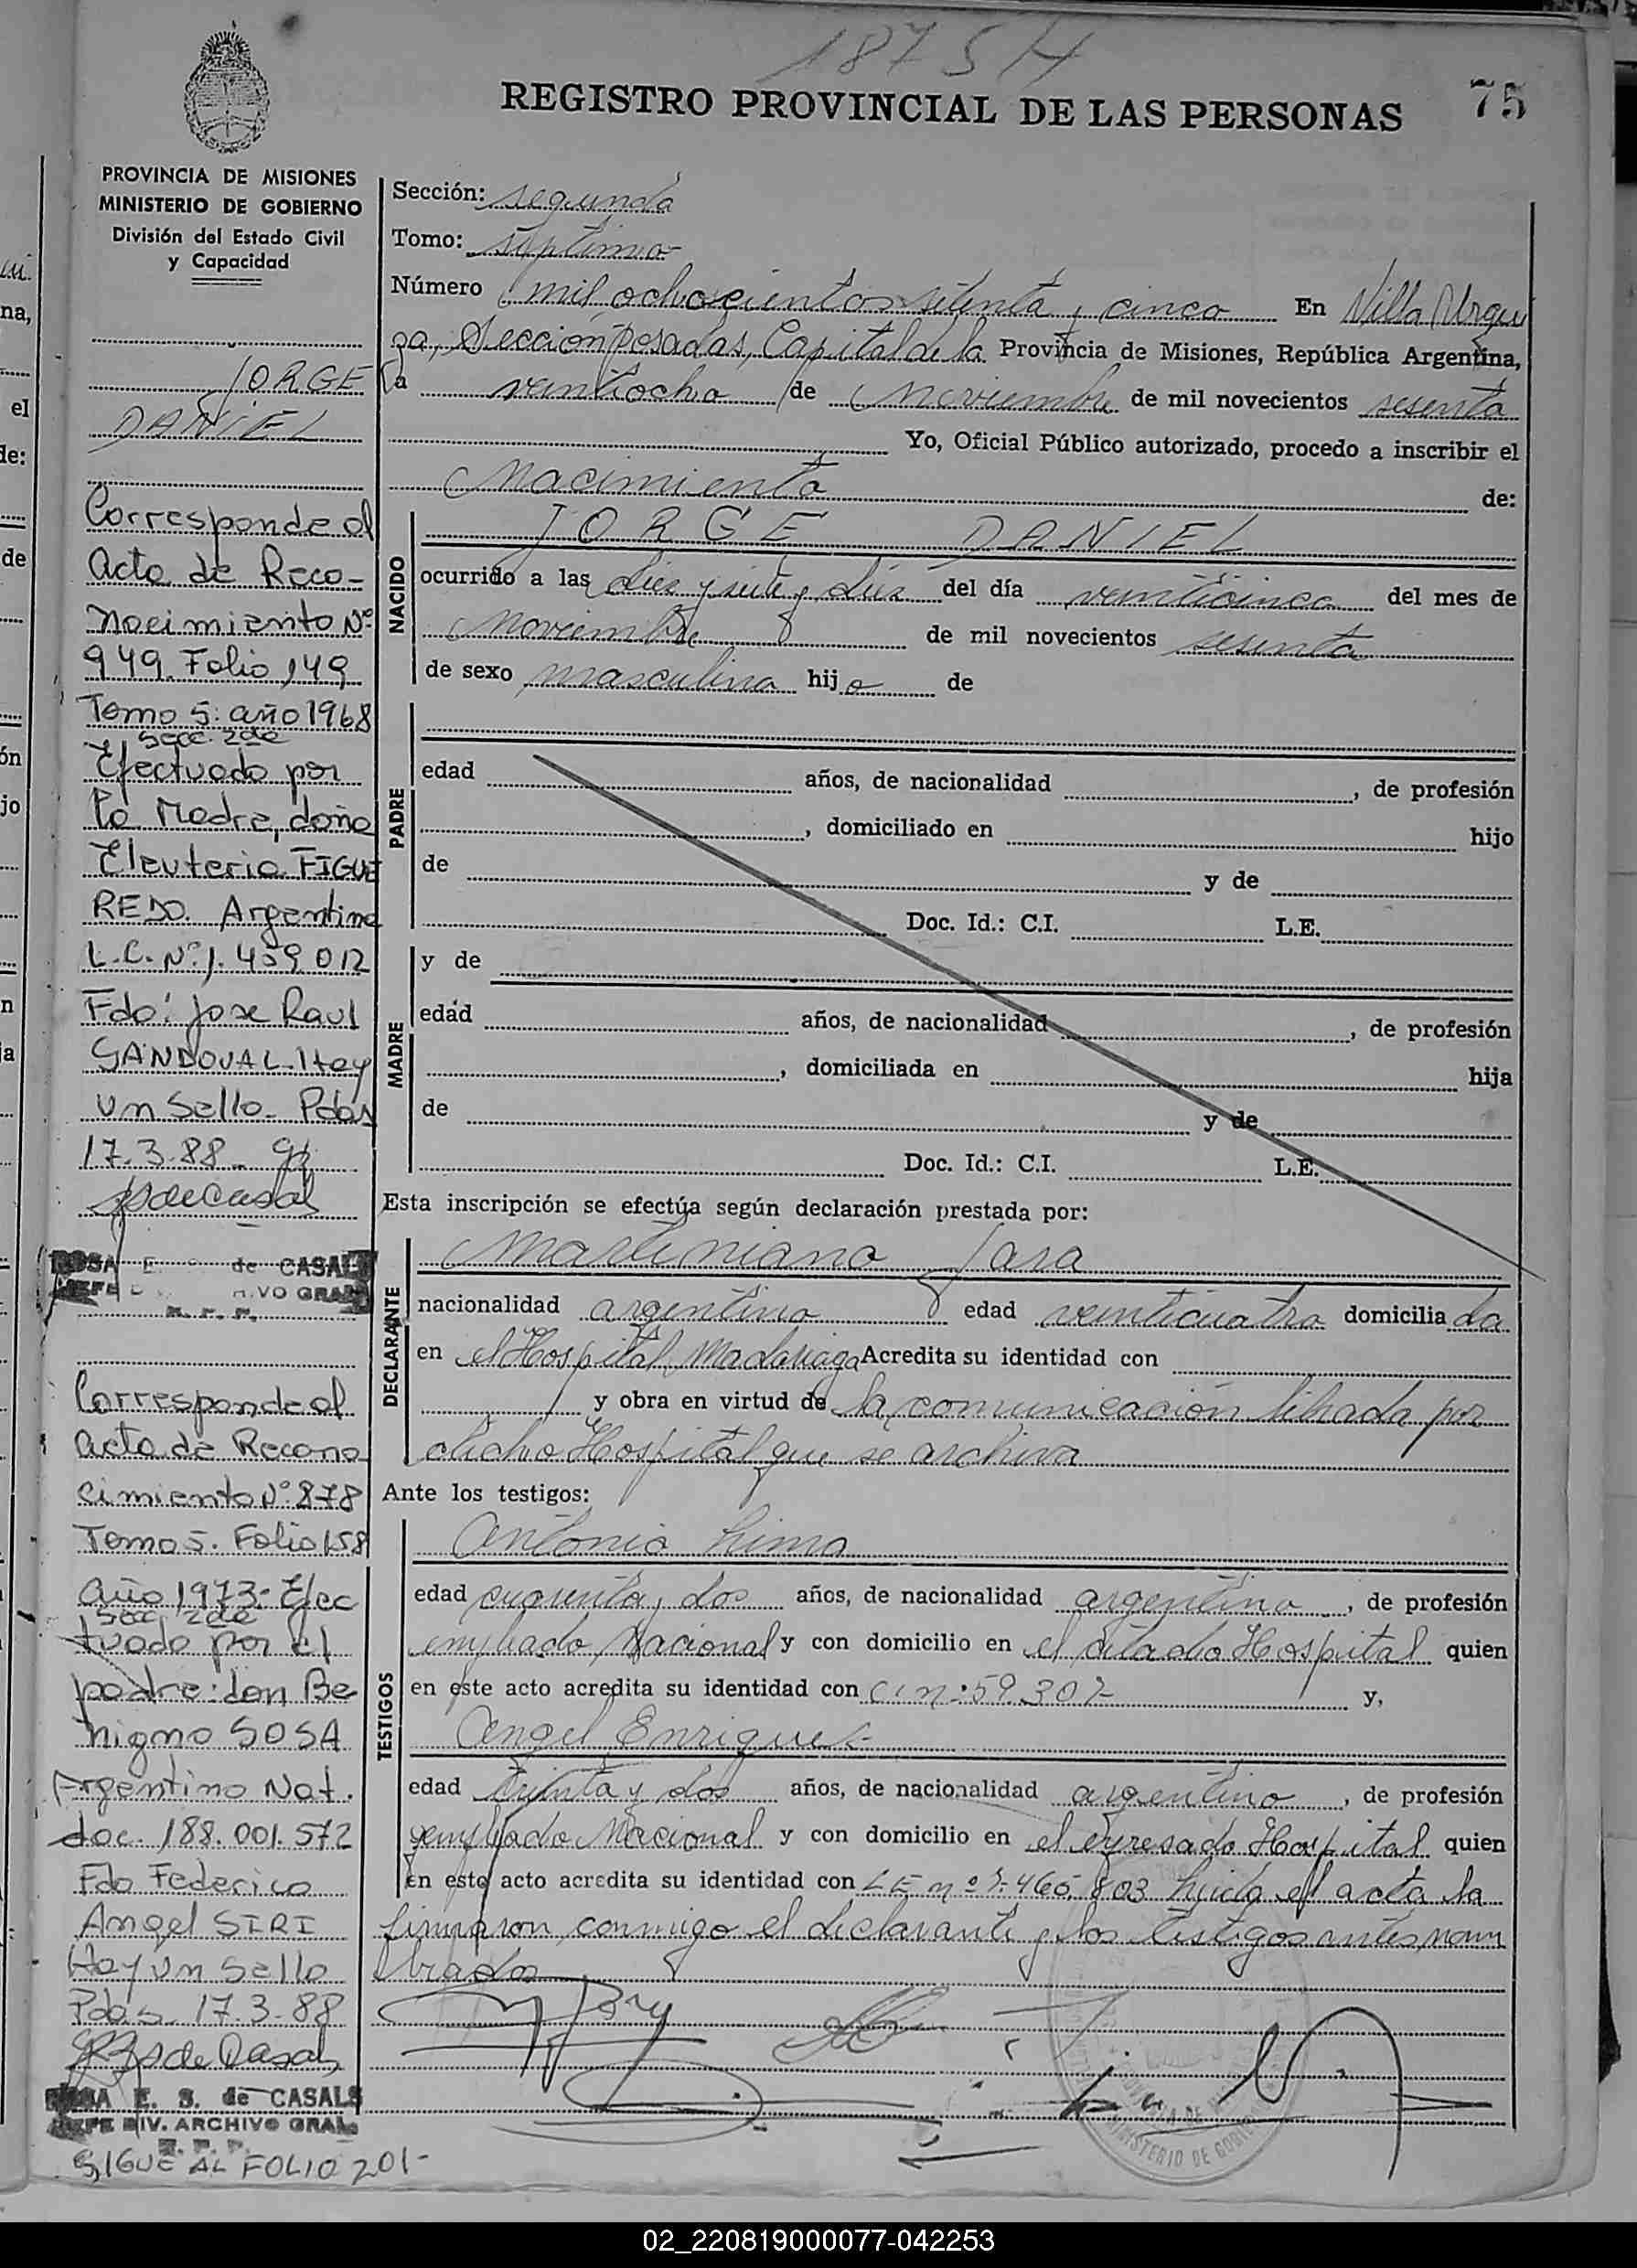 1875 H
REGISTRO PROVINCIAL DE LAS PERSONAS
75
PROVINCIA DE MISIONES
MINISTERIO DE GOBIERNO
División del Estado Civil
y Capacidad
JORGE
DANIEL
Corresponde al
Acta de Reco-
nocimiento Nº
949. Folio 149
Tomo 5: año 1968
Secc. 2da
Efectuado por
la Madre, doña
Eleuteria FIGUE
REDO. Argentina
L.C. Nº 1.459.012
Fdo: Jose Raul
SANDOVAL. Hay
un Sello. Pdas
17.3.88
ROSA E. de CASALS
JEFE D VO GRAL
R. P. P.
Corresponde al
acta de Recono
cimiento Nº 878
Tomo 5. Folio 158
año 1973. Efec
Secc. 2da
tuado por el
padre: don Be
nigno SOSA
Argentino Nat.
doc. 188.001.572
Fdo Federico
Angel SIRI
Hay un Sello
Pdas. 17.3.88
ROSA E. S. de CASALS
JEFE DIV. ARCHIVO GRAL.
R. P. P.
SIGUE AL FOLIO 201-
Sección: segunda
Tomo: septimo
Número mil ochocientos setenta y cinco En Villa Urqui
za, Sección Posadas, Capital de la Provincia de Misiones, República Argentina,
a veintiocho de Noviembre de mil novecientos sesenta
Yo, Oficial Público autorizado, procedo a inscribir el
Nacimiento de:
NACIDO
JORGE DANIEL
ocurrido a las diez y siete y diez del día veinticinco del mes de
Noviembre de mil novecientos sesenta
de sexo masculino hijo de
PADRE
edad años, de nacionalidad , de profesión
, domiciliado en hijo
de y de
Doc. Id.: C.I. L.E.
MADRE
y de
edad años, de nacionalidad , de profesión
, domiciliada en hija
de y de
Doc. Id.: C.I. L.E.
Esta inscripción se efectúa según declaración prestada por:
DECLARANTE
Martiniano Jara
nacionalidad argentino edad veinticuatro domicilia do
en el Hospital Madariaga Acredita su identidad con
y obra en virtud de la comunicación librada por
dicho Hospital que se archiva
Ante los testigos:
TESTIGOS
Antonio Lima
edad cuarenta y dos años, de nacionalidad argentino, de profesión
empleado Nacional y con domicilio en el citado Hospital quien
en este acto acredita su identidad con C I nº 59.307 y,
Angel Enriquez
edad treinta y dos años, de nacionalidad argentino, de profesión
empleado Nacional y con domicilio en el expresado Hospital quien
en este acto acredita su identidad con L E nº 7.465.803 leída el acta la
firmaron conmigo el declarante y los testigos antes nom
brados
MINISTERIO DE GOBIERNO
02_220819000077-042253